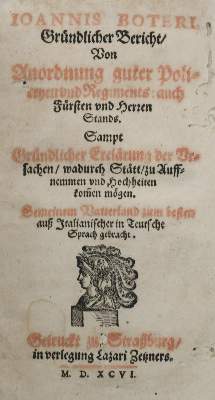 IOANNIS BOTERI,
Gründlicher Bericht/
Von
Anordnung guter Poli-
ceyen vnd Regiments: auch
Fürsten vnd Herren
Stands.
Sampt
Gründlicher Erclärung der Vr-
sachen/ wadurch Stätt/ zu Auff-
nemmen vnd Hochheiten
kom̃en mögen.
Gemeinem Vatterland zum besten
auß Italianischer in Teutsche
Sprach gebracht.
Getruckt zu Straßburg/
in verlegung Lazari Zetzners.
M. D. XCVI.